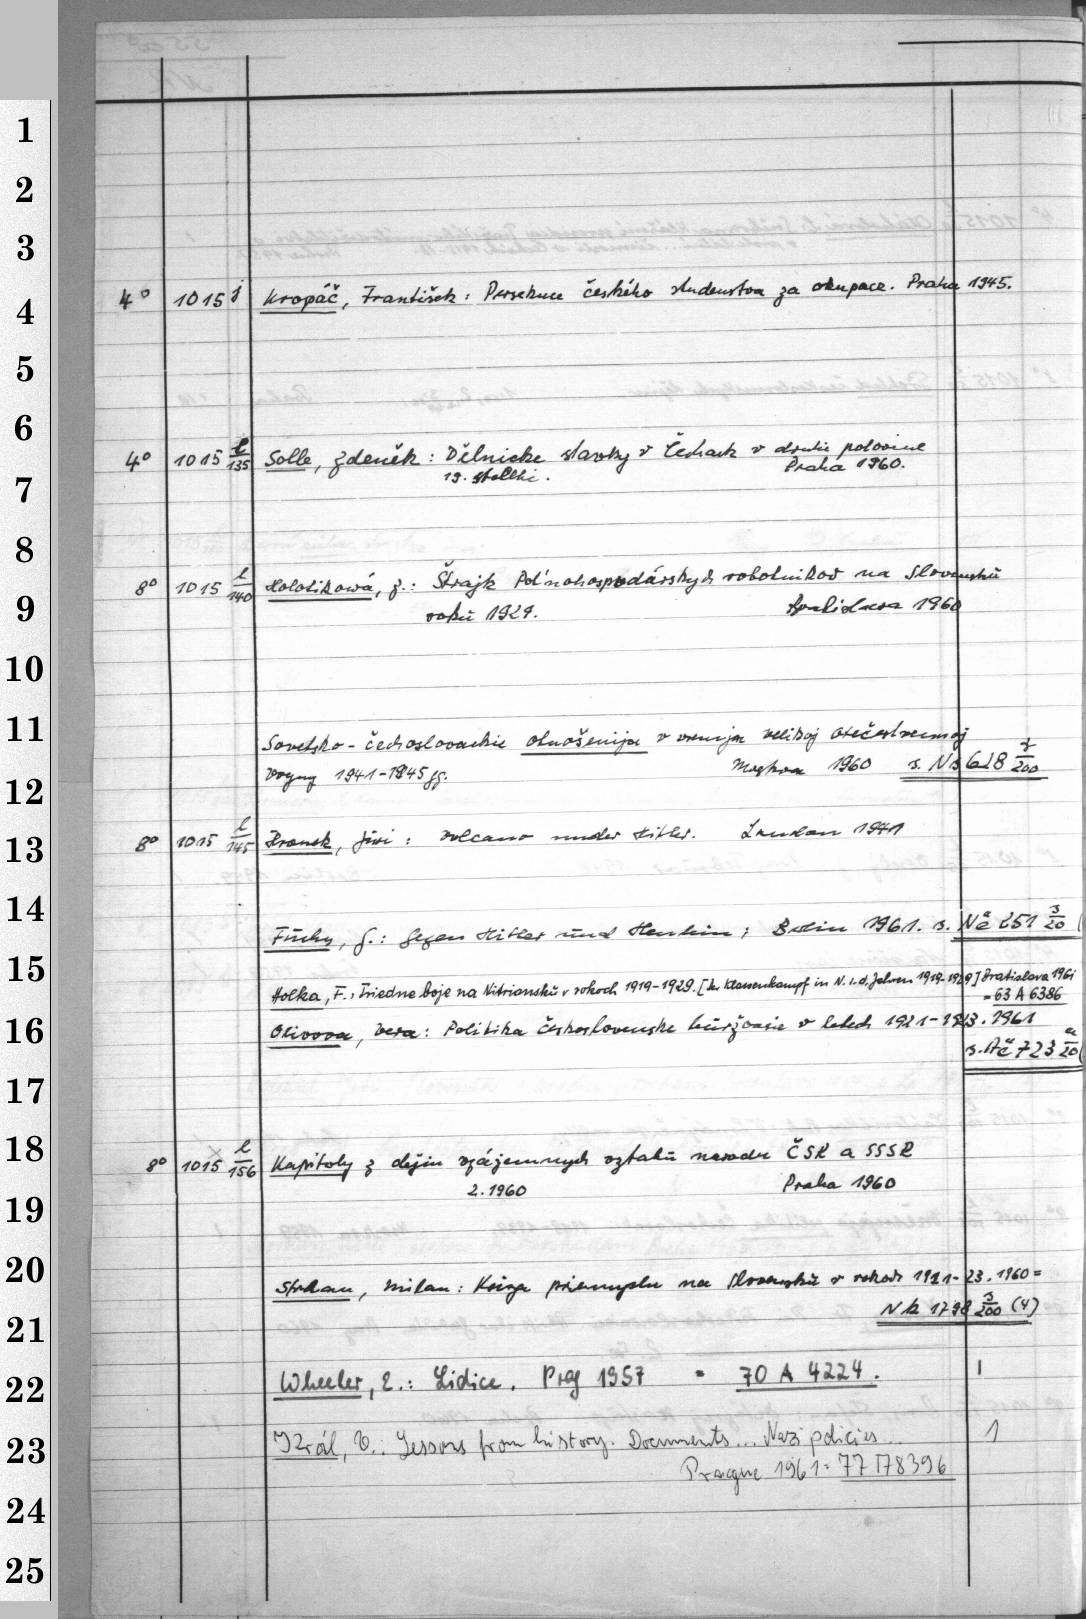 1
2
3
4
4° 1015 j Kropáč, František: Persekuce českého studentstva za okupace. Praha 1945.
5
6
4° 1015 l/135 Solle, Zdeněk: Dělnicke stavky v Čechach v druhe polovine
7
19. stoleti. Praha 1960.
8
8° 1015 l/140 Holotikowá, Z.: Štrajk Pol'nohospodárskych robotnikov na Slovensku
9
roku 1929. Bratislava 1960
10
11
Sovetsko-čechoslovackie otnošenija v vremja velikoj otečestvennoj
Vojny 1941-1945 gg. Moskva 1960 s. Ns 628 s/200
12
8° 1015 l/145 Hronek, Jiri: Volcano under Hitler. London 1941
13
14
Fuchs, G.: Gegen Hitler und Henlein; Berlin 1961. s. Nč 251 s/20 (
15
Holka, F.: Triedne boje na Nitriansku v rokoch 1919-1929. [Der Klassenkampf in N. i. d. Jahren 1919-1929] Bratislava 1961
= 63 A 6386
16
Olivova, Vera: Politika československe buržoasie v letech 1921-1923. 1961
s. Ač 723 a/20 (
17
18
8° 1015 l/156 Kapitoly z dějin vzájemnych vztahů narodu ČSR a SSSR
2. 1960 Praha 1960
19
20
Strhan, Milan: Kriza priemyslu na Slovensku v rokoch 1921-23. 1960 =
Nk 1798 s/200 (4)
21
22
Wheeler, E.: Lidice. Prag 1957 = 70 A 4224. 1
23
Král, V.: Lessons from history. Documents... Nazi policies... 1
Prague 1961 = 77 A 8396
24
25